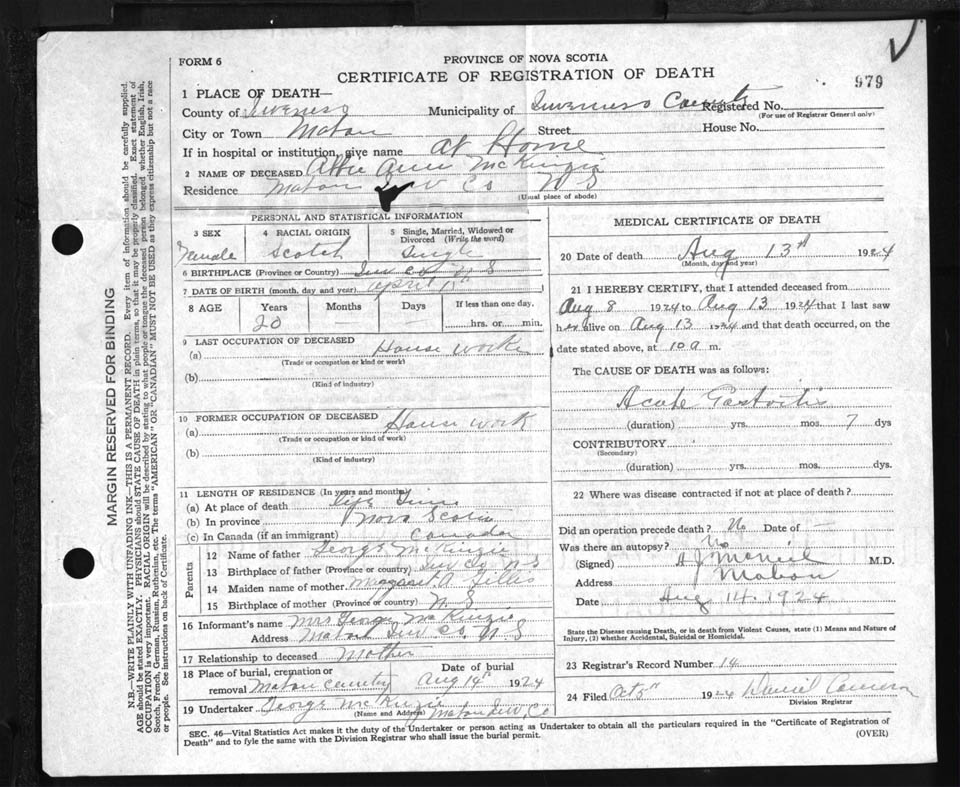 FORM 6
PROVINCE OF NOVA SCOTIA
CERTIFICATE OF REGISTRATION OF DEATH
979
1 PLACE OF DEATH—
County of Inverness Municipality of Inverness County Registered No.
(For use of Registrar General only)
City or Town Mabou Street House No.
If in hospital or institution, give name at Home
2 NAME OF DECEASED Annie McKinzie
Residence Mabou Inv Co N S
(Usual place of abode)
PERSONAL AND STATISTICAL INFORMATION
3 SEX 4 RACIAL ORIGIN 5 Single, Married, Widowed or Divorced (Write the word)
Female Scotch Single
6 BIRTHPLACE (Province or Country) Inv Co N S
7 DATE OF BIRTH (month, day and year) April
8 AGE Years Months Days If less than one day.
20 hrs. or min.
9 LAST OCCUPATION OF DECEASED
(a) House Worke
(Trade or occupation or kind or work)
(b)
(Kind of industry)
10 FORMER OCCUPATION OF DECEASED
(a) House work
(Trade or occupation or kind of work)
(b)
(Kind of industry)
11 LENGTH OF RESIDENCE (In years and months)
(a) At place of death life Time
(b) In province Nova Scotia
(c) In Canada (if an immigrant) Canada
Parents
12 Name of father George McKinzie
13 Birthplace of father (Province or country) Inv Co N S
14 Maiden name of mother Margaret A Gillis
15 Birthplace of mother (Province or country) N. S
16 Informant's name Mrs George McKinzie
Address Mabou Inv Co. N S
17 Relationship to deceased Mother
18 Place of burial, cremation or removal Mabou Date of burial Aug 14th 1924
19 Undertaker George McKinzie Mabou Inv. Co
(Name and Address)
MEDICAL CERTIFICATE OF DEATH
20 Date of death Aug 13th 1924
(Month, day and year)
21 I HEREBY CERTIFY, that I attended deceased from
Aug 8 1924 to Aug 13 1924 that I last saw
her alive on Aug 13 1924 and that death occurred, on the
date stated above, at 10 a m.
The CAUSE OF DEATH was as follows:
Acute Gastritis
(duration) yrs. mos. 7 dys
CONTRIBUTORY
(Secondary)
(duration) yrs. mos. dys.
22 Where was disease contracted if not at place of death?
Did an operation precede death? No Date of —
Was there an autopsy? No
(Signed) A J McNeil M.D.
Address Mabou
Date Aug 14. 1924
State the Disease causing Death, or in death from Violent Causes, state (1) Means and Nature of
Injury, (2) whether Accidental, Suicidal or Homicidal.
23 Registrar's Record Number 14
24 Filed Oct 1924 Daniel Cameron
Division Registrar
SEC. 46—Vital Statistics Act makes it the duty of the Undertaker or person acting as Undertaker to obtain all the particulars required in the "Certificate of Registration of
Death" and to fyle the same with the Division Registrar who shall issue the burial permit.
(OVER)
MARGIN RESERVED FOR BINDING
N.B.—WRITE PLAINLY WITH UNFADING INK—THIS IS A PERMANENT RECORD. Every item of information should be carefully supplied.
AGE should be stated EXACTLY. PHYSICIANS should STATE CAUSE OF DEATH in plain terms, so that it may be properly classified. Exact statement of
OCCUPATION is very important. RACIAL ORIGIN will be described by stating to what people or tongue the deceased person belonged whether English, Irish,
Scotch, French, German, Russian, Ruthenian, etc. The terms "AMERICAN" OR "CANADIAN" MUST NOT BE USED as they express citizenship but not a race
or people. See instructions on back of Certificate.